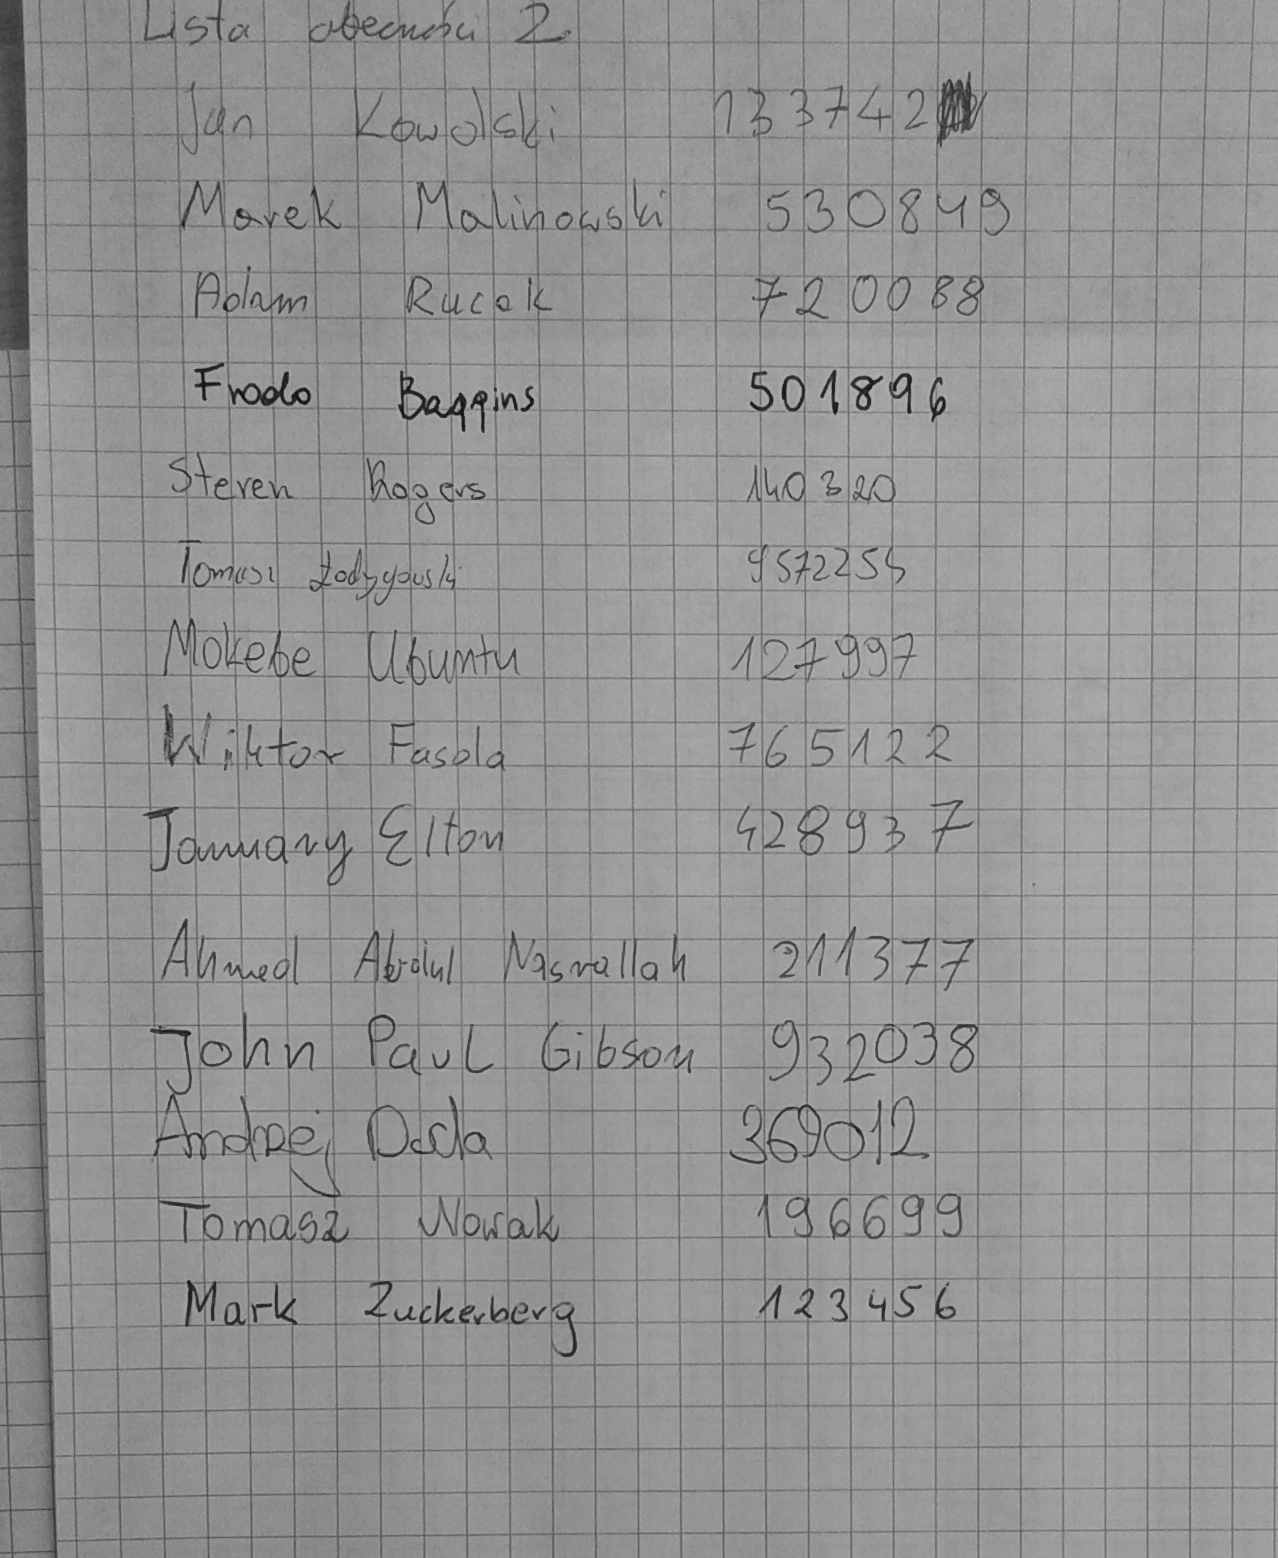 Lista obecności 2
Jan Kowalski 133742
Marek Malinowski 530849
Adam Rucok 720088
Frodo Baggins 501896
Steven Rogers 140320
Tomasz 9572254
Mokebe Ubuntu 127997
Wiktor Fasola 765122
January Elton 428937
Ahmed Abdul Nasrallah 211377
John Paul Gibson 932038
Andrzej Duda 369012
Tomasz Nowak 196699
Mark Zuckerberg 123456